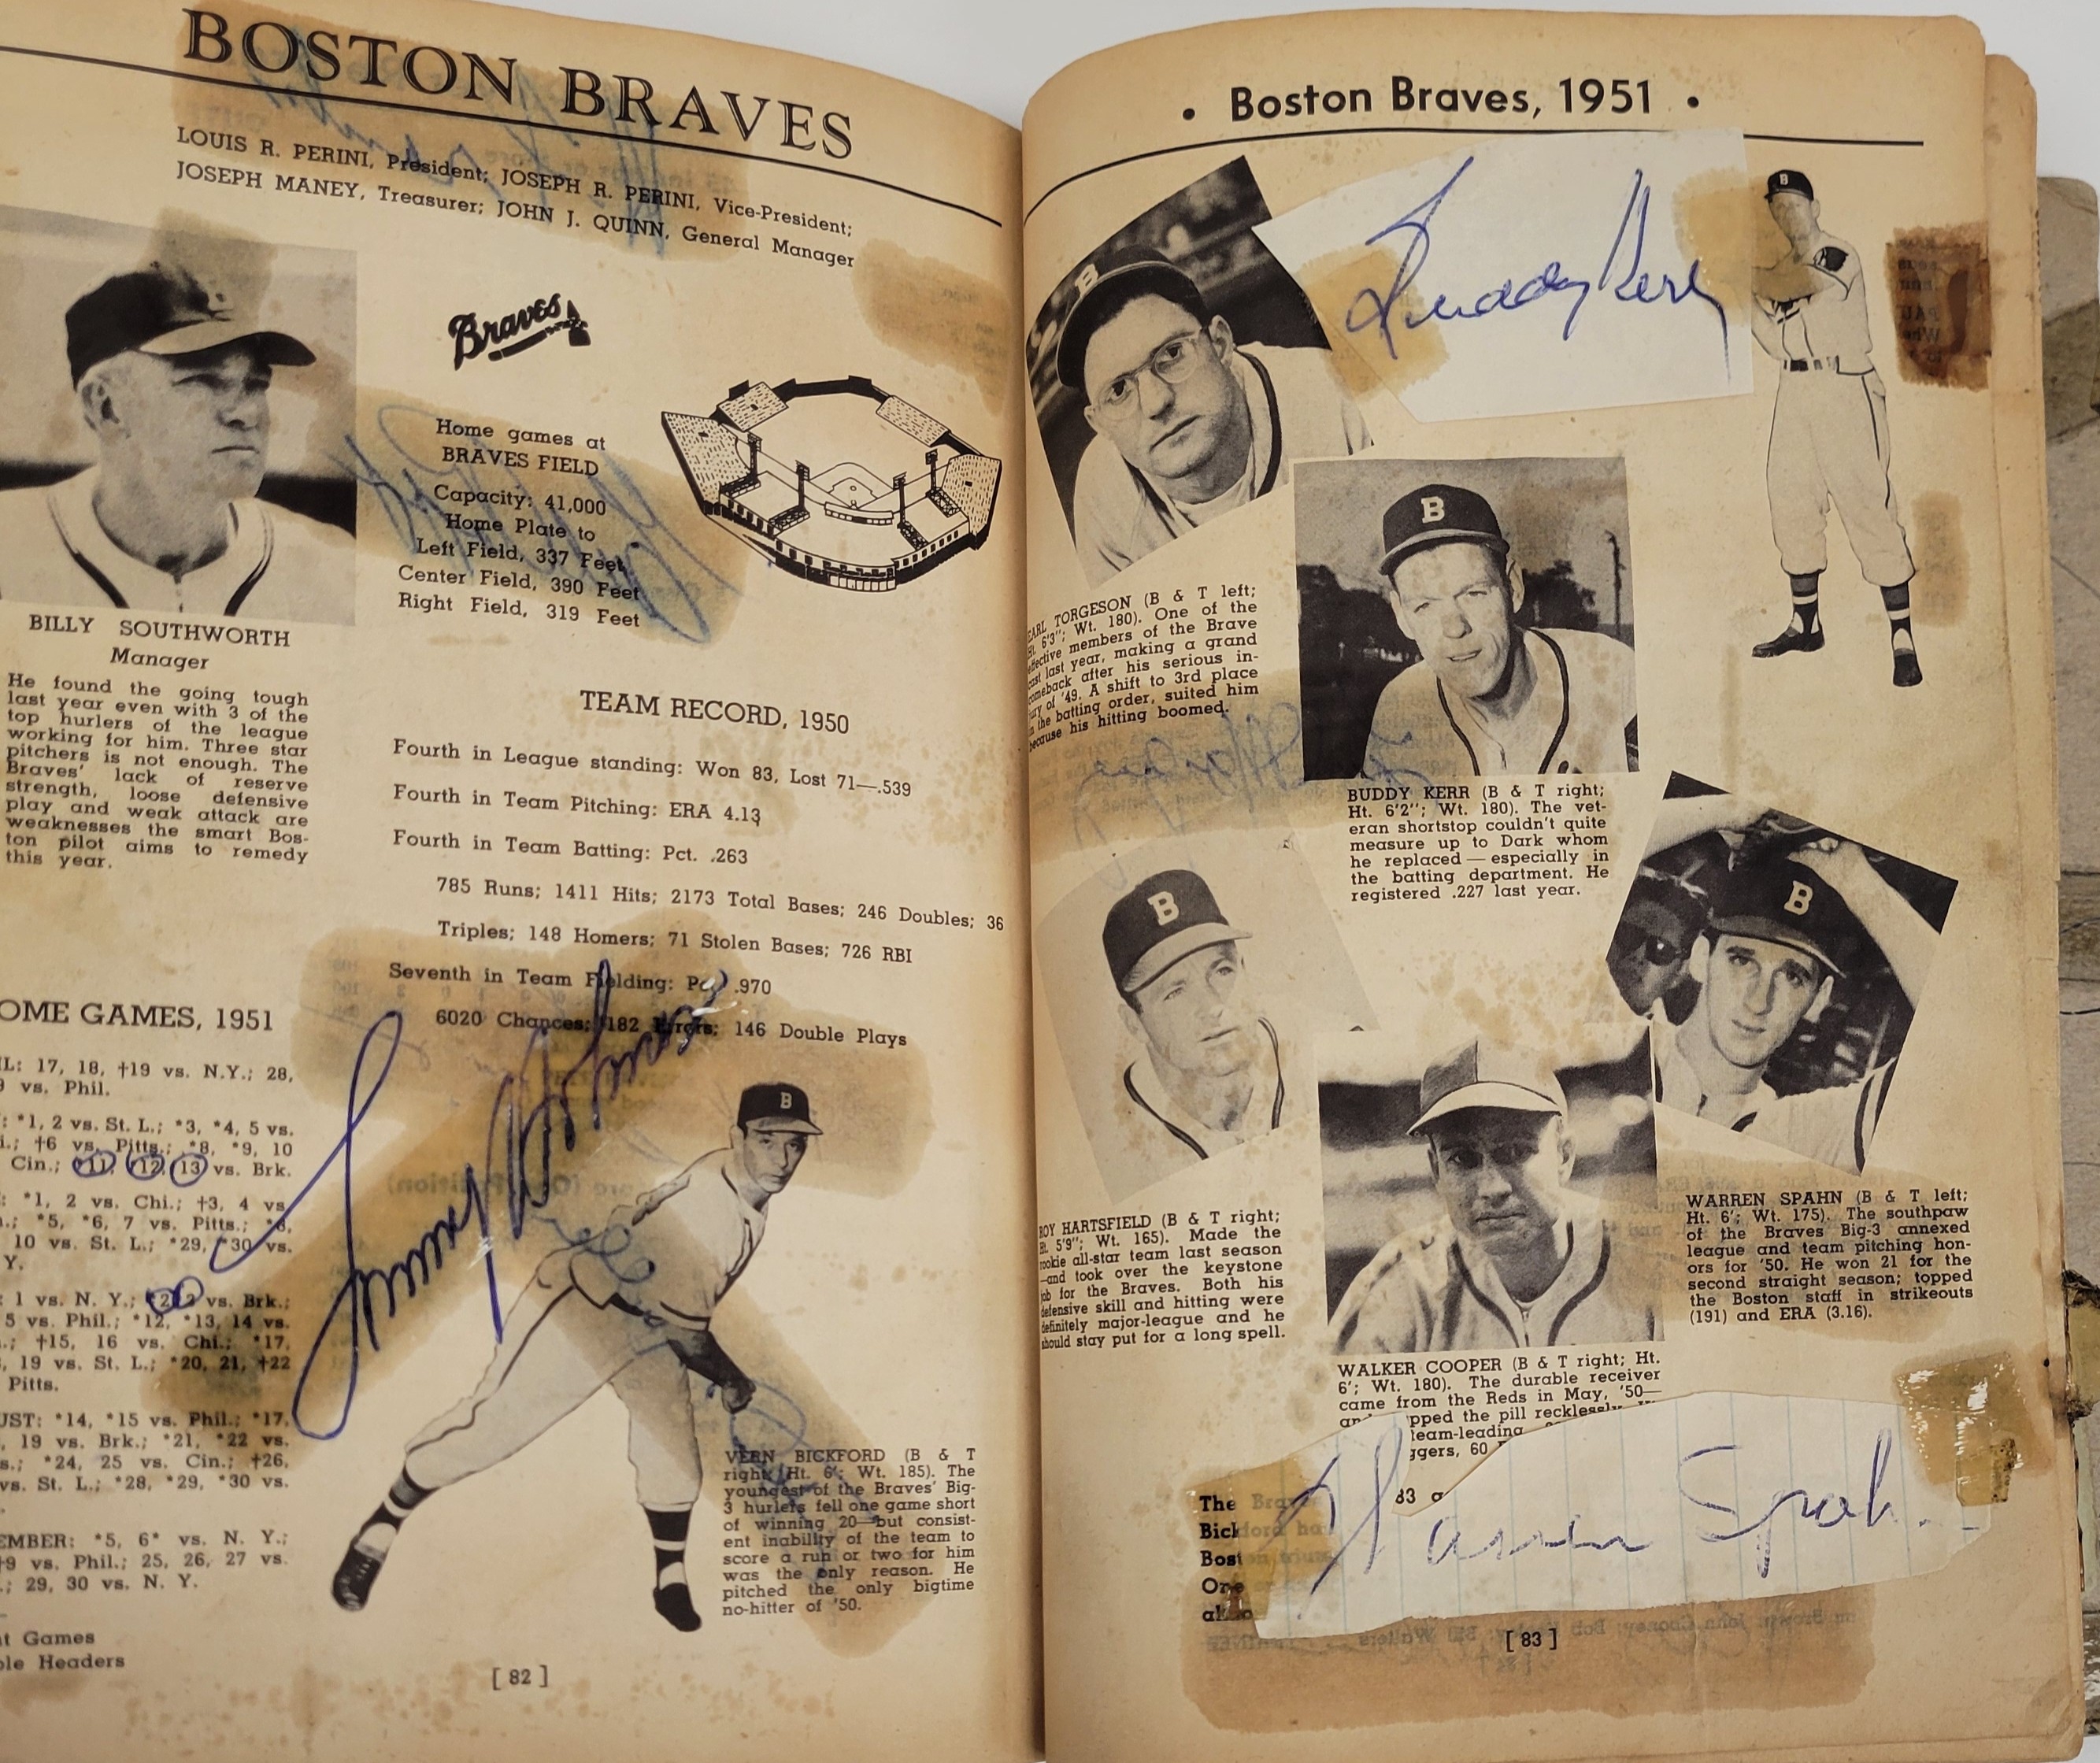 BOSTON BRAVES
LOUIS R. PERINI, President; JOSEPH R. PERINI, Vice-President;
JOSEPH MANEY, Treasurer; JOHN J. QUINN, General Manager
Braves
Home games at
BRAVES FIELD
Capacity: 41,000
Home Plate to
Left Field, 337 Feet
Center Field, 390 Feet
Right Field, 319 Feet
BILLY SOUTHWORTH
Manager
He found the going tough
last year even with 3 of the
top hurlers of the league
working for him. Three star
pitchers is not enough. The
Braves' lack of reserve
strength, loose defensive
play and weak attack are
weaknesses the smart Bos-
ton pilot aims to remedy
this year.
TEAM RECORD, 1950
Fourth in League standing: Won 83, Lost 71—.539
Fourth in Team Pitching: ERA 4.13
Fourth in Team Batting: Pct. .263
785 Runs; 1411 Hits; 2173 Total Bases; 246 Doubles; 36
Triples; 148 Homers; 71 Stolen Bases; 726 RBI
Seventh in Team Fielding: Pct. .970
6020 Chances; 182 Errors; 146 Double Plays
OME GAMES, 1951
IL: 17, 18, †19 vs. N.Y.; 28,
9 vs. Phil.
: *1, 2 vs. St. L.; *3, *4, 5 vs.
i.; †6 vs. Pitts.; *8, *9, 10
Cin.; *11, *12, 13 vs. Brk.
: *1, 2 vs. Chi.; †3, 4 vs.
.; *5, *6, 7 vs. Pitts.; *8,
10 vs. St. L.; *29, *30 vs.
Y.
: 1 vs. N. Y.; *2, 3 vs. Brk.;
5 vs. Phil.; *12, *13, 14 vs.
.; †15, 16 vs. Chi.; *17,
, 19 vs. St. L.; *20, 21, †22
Pitts.
UST: *14, *15 vs. Phil.; *17,
, 19 vs. Brk.; *21, *22 vs.
s.; *24, 25 vs. Cin.; †26,
vs. St. L.; *28, *29, *30 vs.
EMBER: *5, 6* vs. N. Y.;
†9 vs. Phil.; 25, 26, 27 vs.
.; 29, 30 vs. N. Y.
t Games
ble Headers
VERN BICKFORD (B & T
right; Ht. 6'; Wt. 185). The
youngest of the Braves' Big-
3 hurlers fell one game short
of winning 20—but consist-
ent inability of the team to
score a run or two for him
was the only reason. He
pitched the only bigtime
no-hitter of '50.
[ 82 ]
• Boston Braves, 1951 •
Buddy Kerr
EARL TORGESON (B & T left;
Ht. 6'3"; Wt. 180). One of the
effective members of the Brave
cast last year, making a grand
comeback after his serious in-
jury of '49. A shift to 3rd place
in the batting order, suited him
because his hitting boomed.
BUDDY KERR (B & T right;
Ht. 6'2"; Wt. 180). The vet-
eran shortstop couldn't quite
measure up to Dark whom
he replaced — especially in
the batting department. He
registered .227 last year.
ROY HARTSFIELD (B & T right;
Ht. 5'9"; Wt. 165). Made the
rookie all-star team last season
—and took over the keystone
job for the Braves. Both his
defensive skill and hitting were
definitely major-league and he
should stay put for a long spell.
WARREN SPAHN (B & T left;
Ht. 6'; Wt. 175). The southpaw
of the Braves Big-3 annexed
league and team pitching hon-
ors for '50. He won 21 for the
second straight season; topped
the Boston staff in strikeouts
(191) and ERA (3.16).
WALKER COOPER (B & T right; Ht.
6'; Wt. 180). The durable receiver
came from the Reds in May, '50—
and pped the pill recklessly.
team-leading
ggers, 60
83
Warren Spahn
The Brave
Bickford ha
Boston
One
[ 83 ]